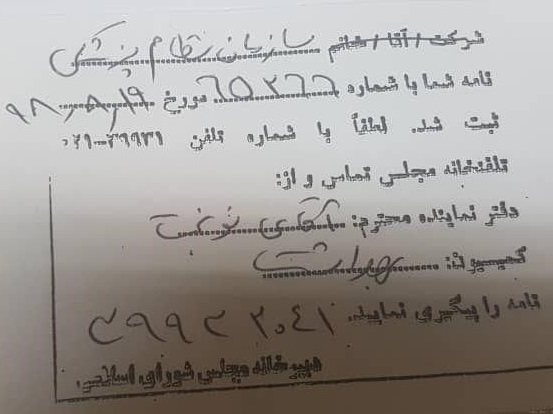 شرکت / آقا / خانم سازمان نظام پزشکی
نامه شما با شماره ۶۵۲۶۶ مورخ ۹۸/۸/۱۹
ثبت شد. لطفاً با شماره تلفن ۳۹۹۳۱-۰۲۱
تلفنخانه مجلس تماس و از:
دفتر نماینده محترم: آقای نوبخت
کمیسیون: بهداشت
نامه را پیگیری نمایید.
دبیرخانه مجلس شورای اسلامی